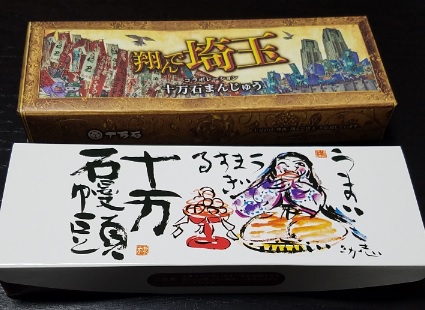 翔んで埼玉
コラボレーション
十万石まんじゅう
十万石
うまい
うますぎる
十万
石饅頭